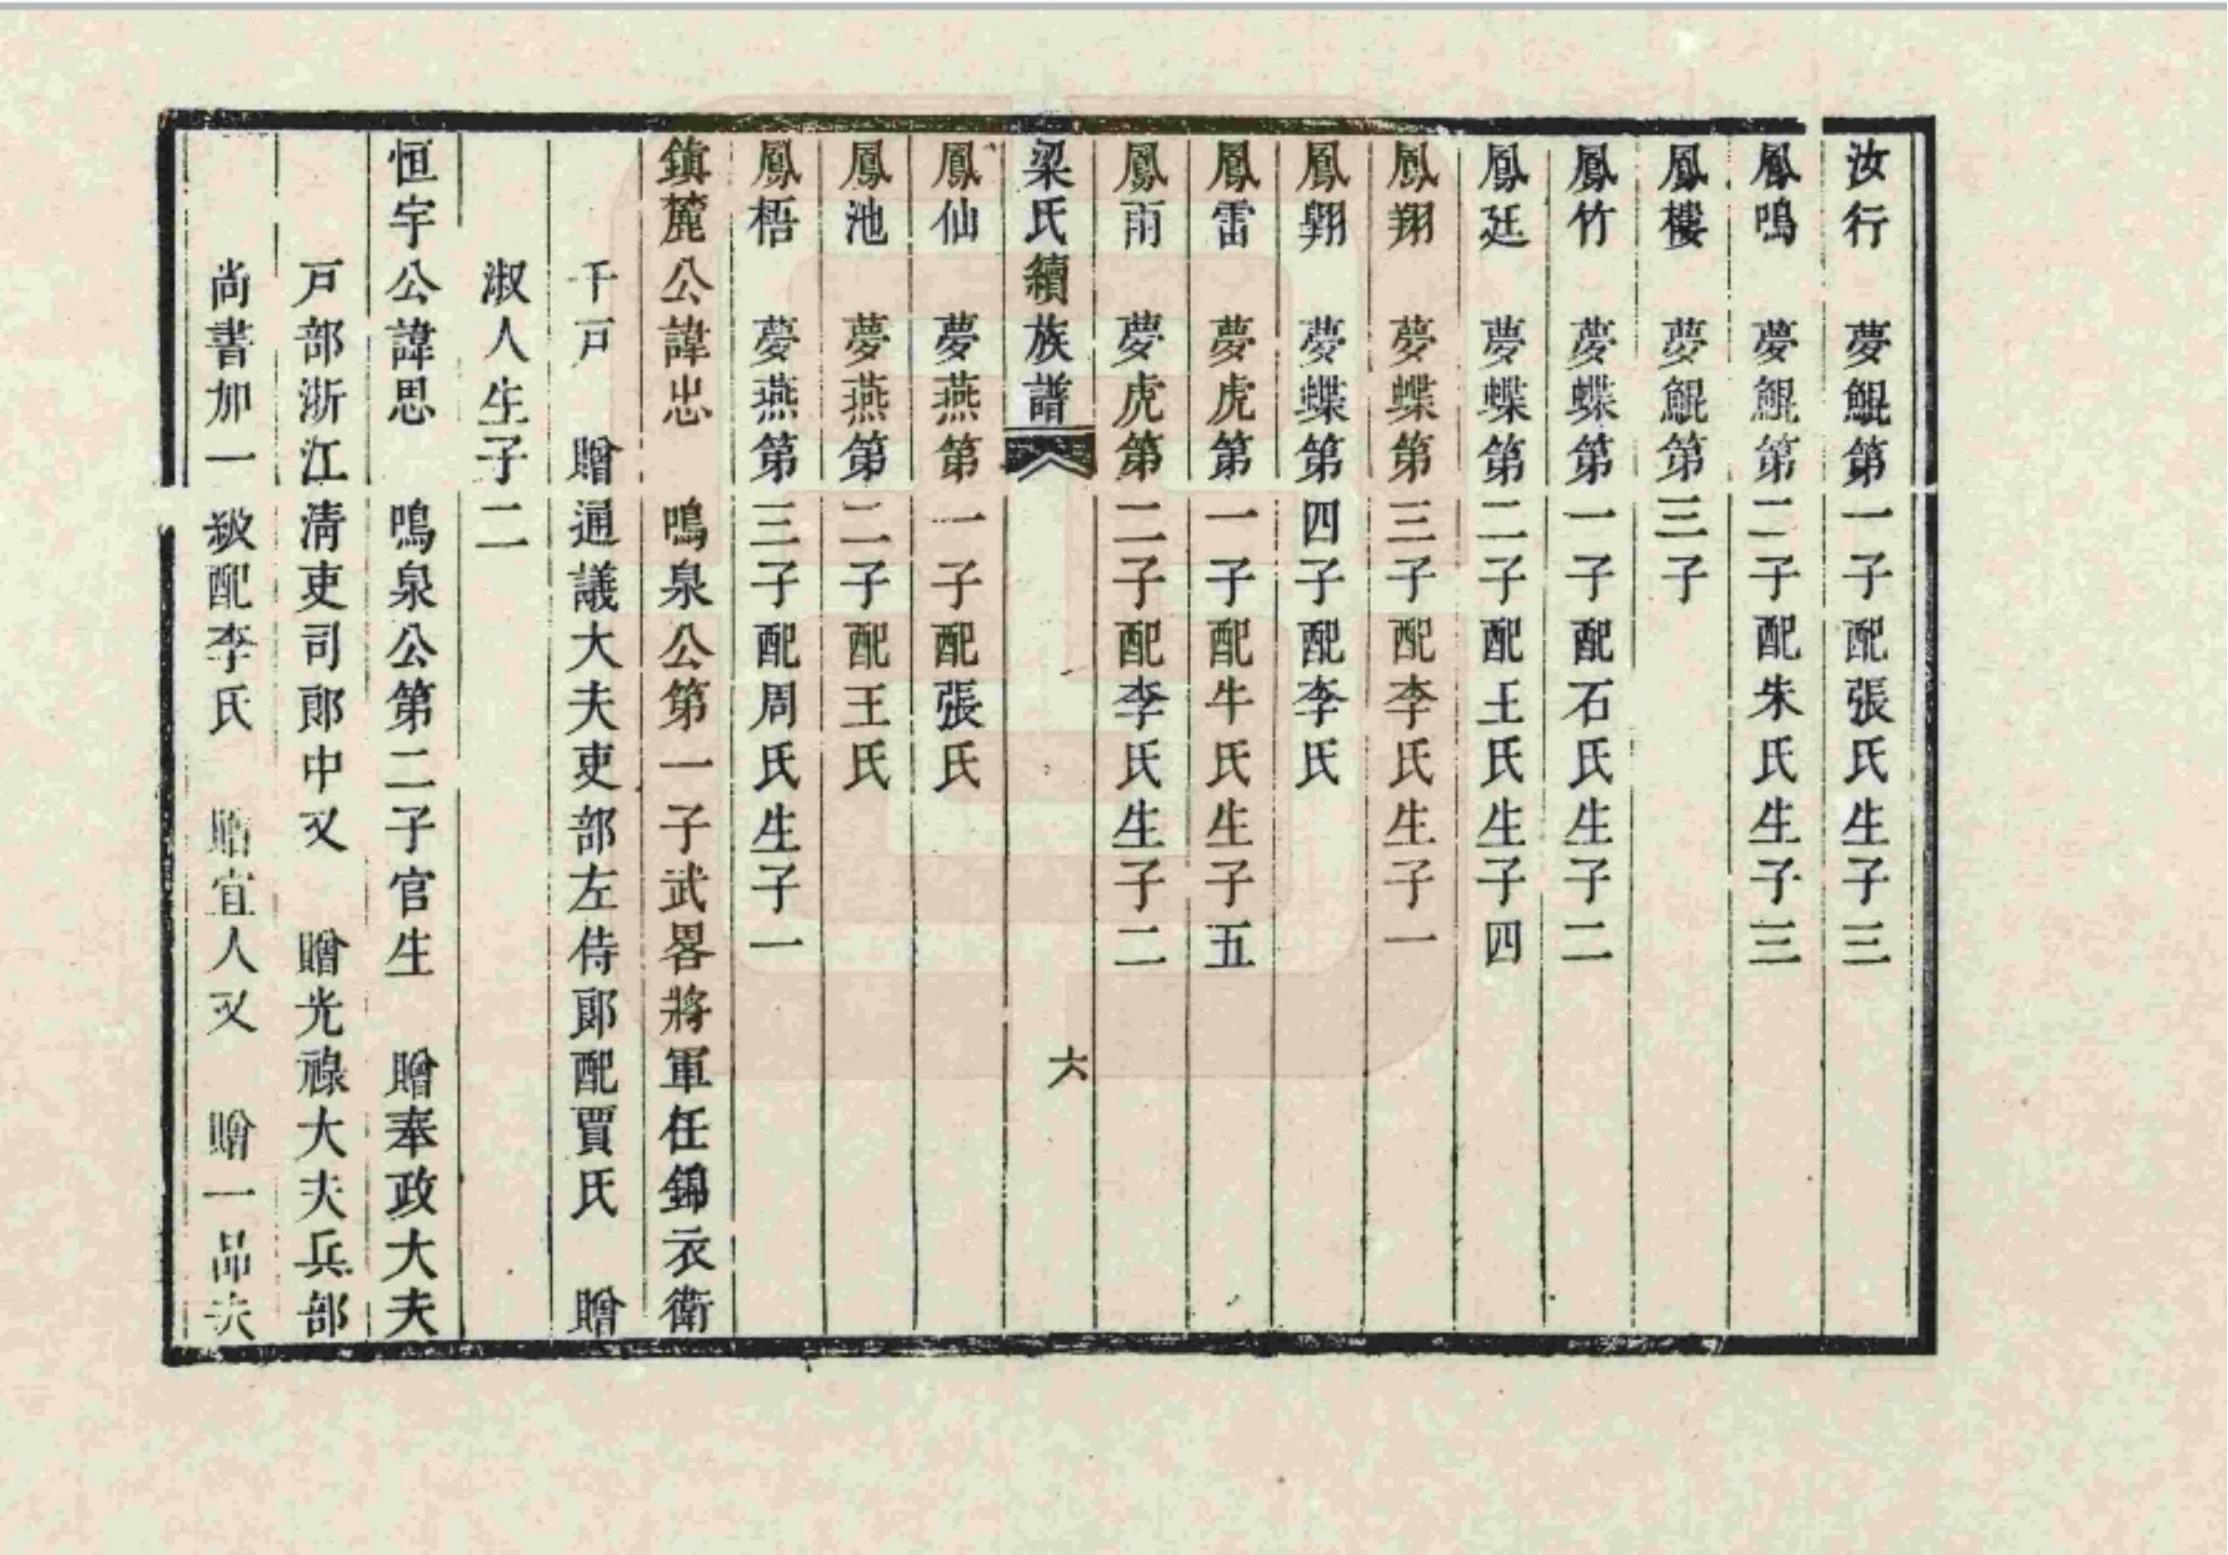 汝行　夢鯤第一子配張氏生子三
鳳鳴　夢鯤第二子配朱氏生子三
鳳樓　夢鯤第三子
鳳竹　夢蝶第一子配石氏生子二
鳳廷　夢蝶第二子配王氏生子四
鳳翔　夢蝶第三子配李氏生子一
鳳翱　夢蝶第四子配李氏
鳳雷　夢虎第一子配牛氏生子五
鳳雨　夢虎第二子配李氏生子二
梁氏續族譜　六
鳳仙　夢燕第一子配張氏
鳳池　夢燕第二子配王氏
鳳梧　夢燕第三子配周氏生子一
鎮麓公諱忠　鳴泉公第一子武畧將軍任錦衣衛
千戸　贈通議大夫吏部左侍郎配賈氏　贈
淑人生子二
恒宇公諱思　鳴泉公第二子官生　贈奉政大夫
戸部浙江清吏司郎中又　贈光祿大夫兵部
尚書加一級配李氏　貽宜人又　贈一品夫